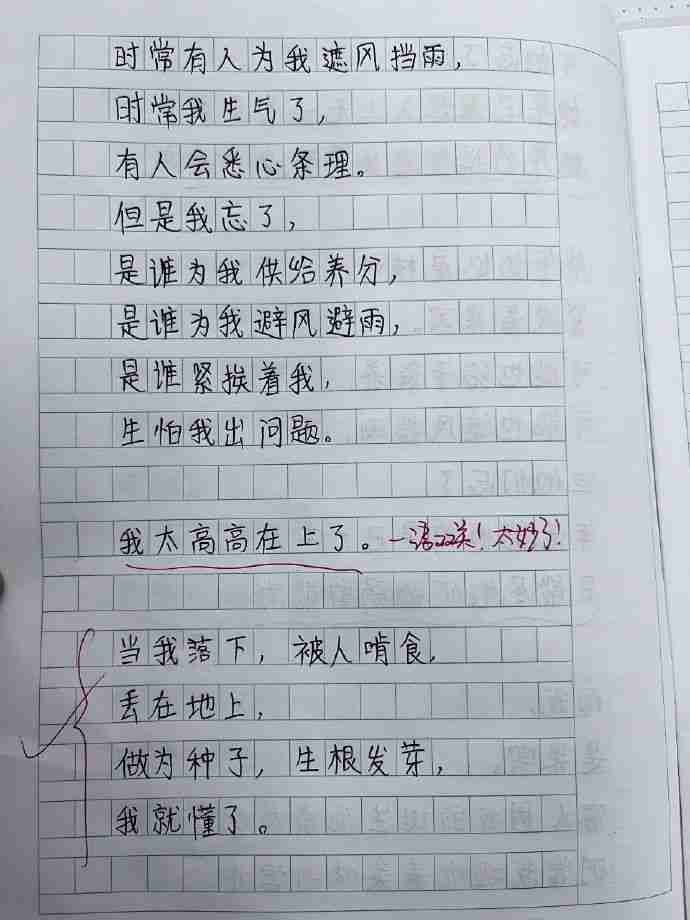 时常有人为我遮风挡雨，
时常我生气了，
有人会悉心条理。
但是我忘了，
是谁为我供给养分，
是谁为我避风避雨，
是谁紧挨着我，
生怕我出问题。
我太高高在上了。一语双关！太妙了！
当我落下，被人啃食，
丢在地上，
做为种子，生根发芽，
我就懂了。